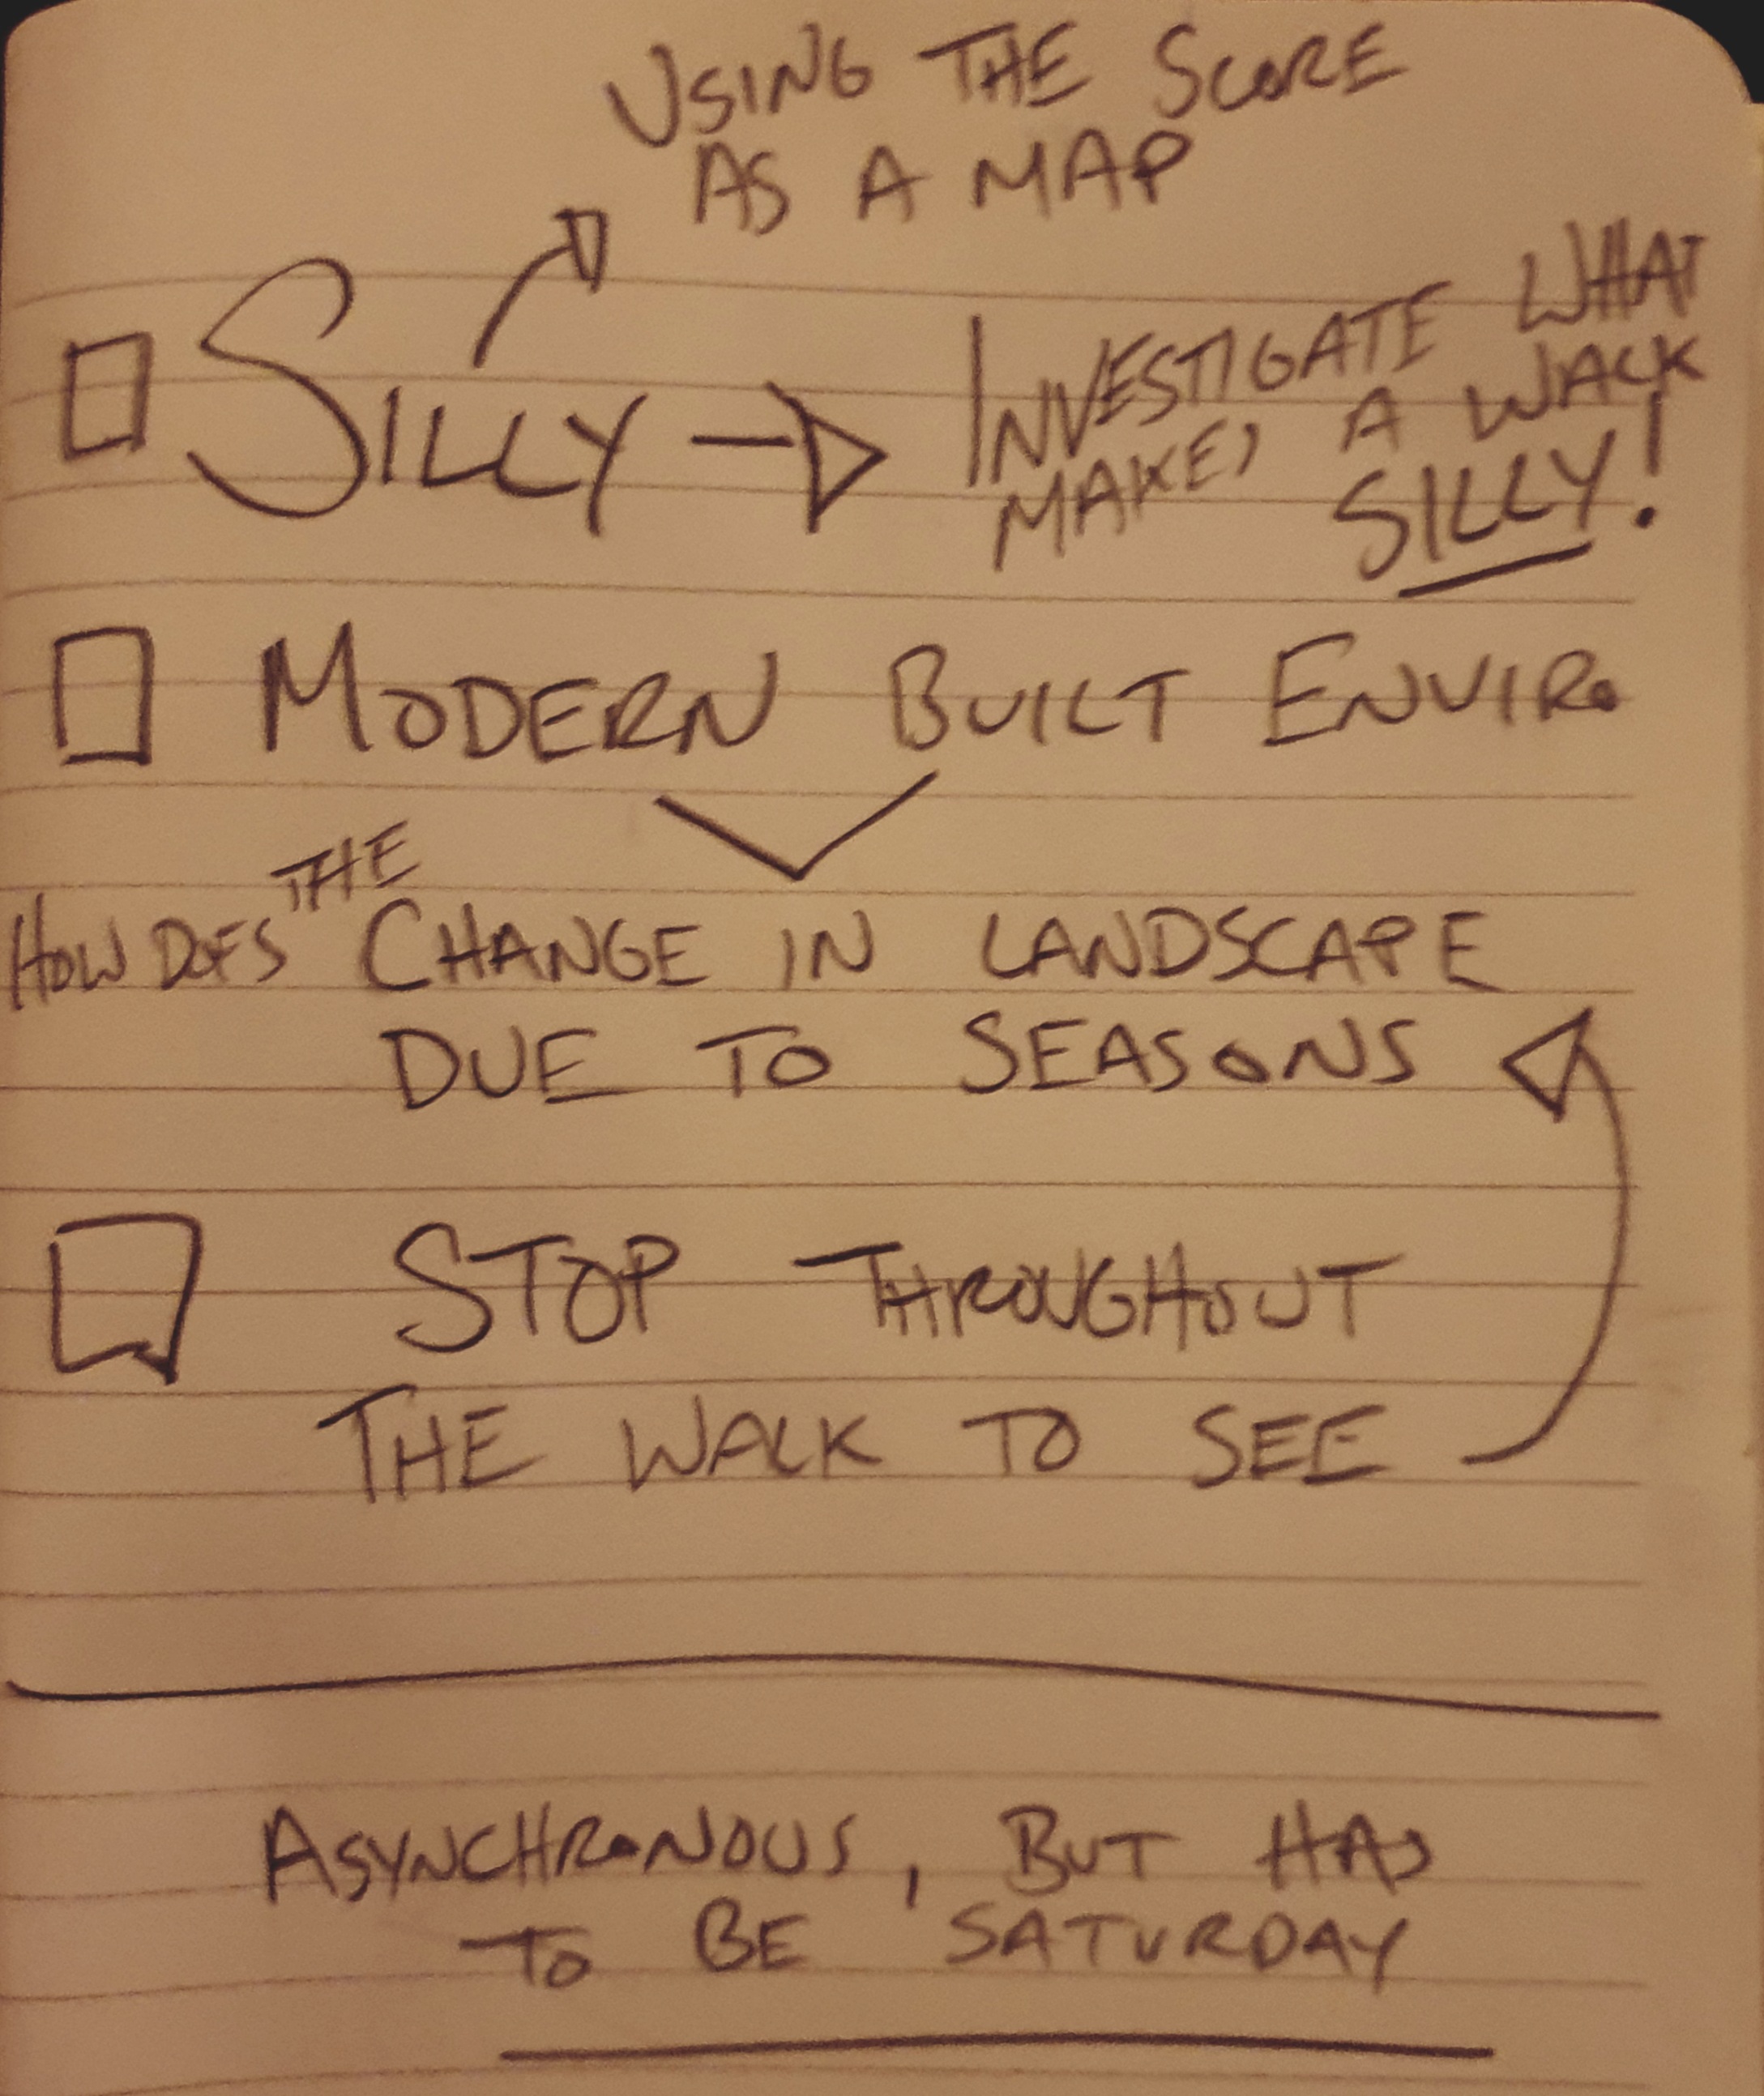 USING THE SCORE
AS A MAP
SILLY
INVESTIGATE WHAT
MAKES A WALK
SILLY!
MODERN BUILT ENVIR.
HOW DOES THE CHANGE IN LANDSCAPE
DUE TO SEASONS
STOP THROUGHOUT
THE WALK TO SEE
ASYNCHRONOUS, BUT HAS
TO BE SATURDAY